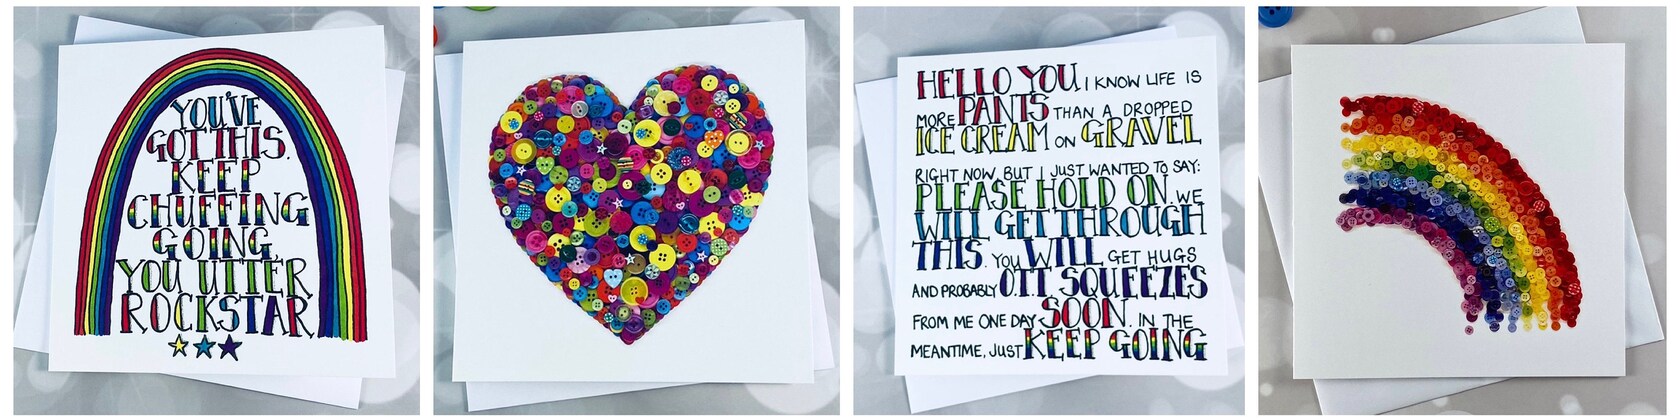 YOU'VE
GOT THIS.
KEEP
CHUFFING
GOING
YOU UTTER
ROCKSTAR
HELLO YOU I KNOW LIFE IS
MORE PANTS THAN A DROPPED
ICE CREAM ON GRAVEL
RIGHT NOW, BUT I JUST WANTED TO SAY:
PLEASE HOLD ON. WE
WILL GET THROUGH
THIS. YOU WILL GET HUGS
AND PROBABLY O.T.T SQUEEZES
FROM ME ONE DAY SOON. IN THE
MEANTIME, JUST KEEP GOING